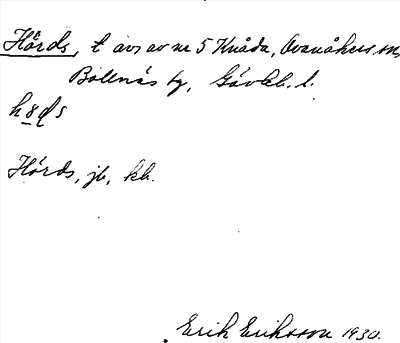 Hårds, t avs av nr 5 Knåda, Ovanåkers sn,
Bollnäs tg, Gävleb. l.
Hårds, jb, kb.
Erik Eriksson 1930.